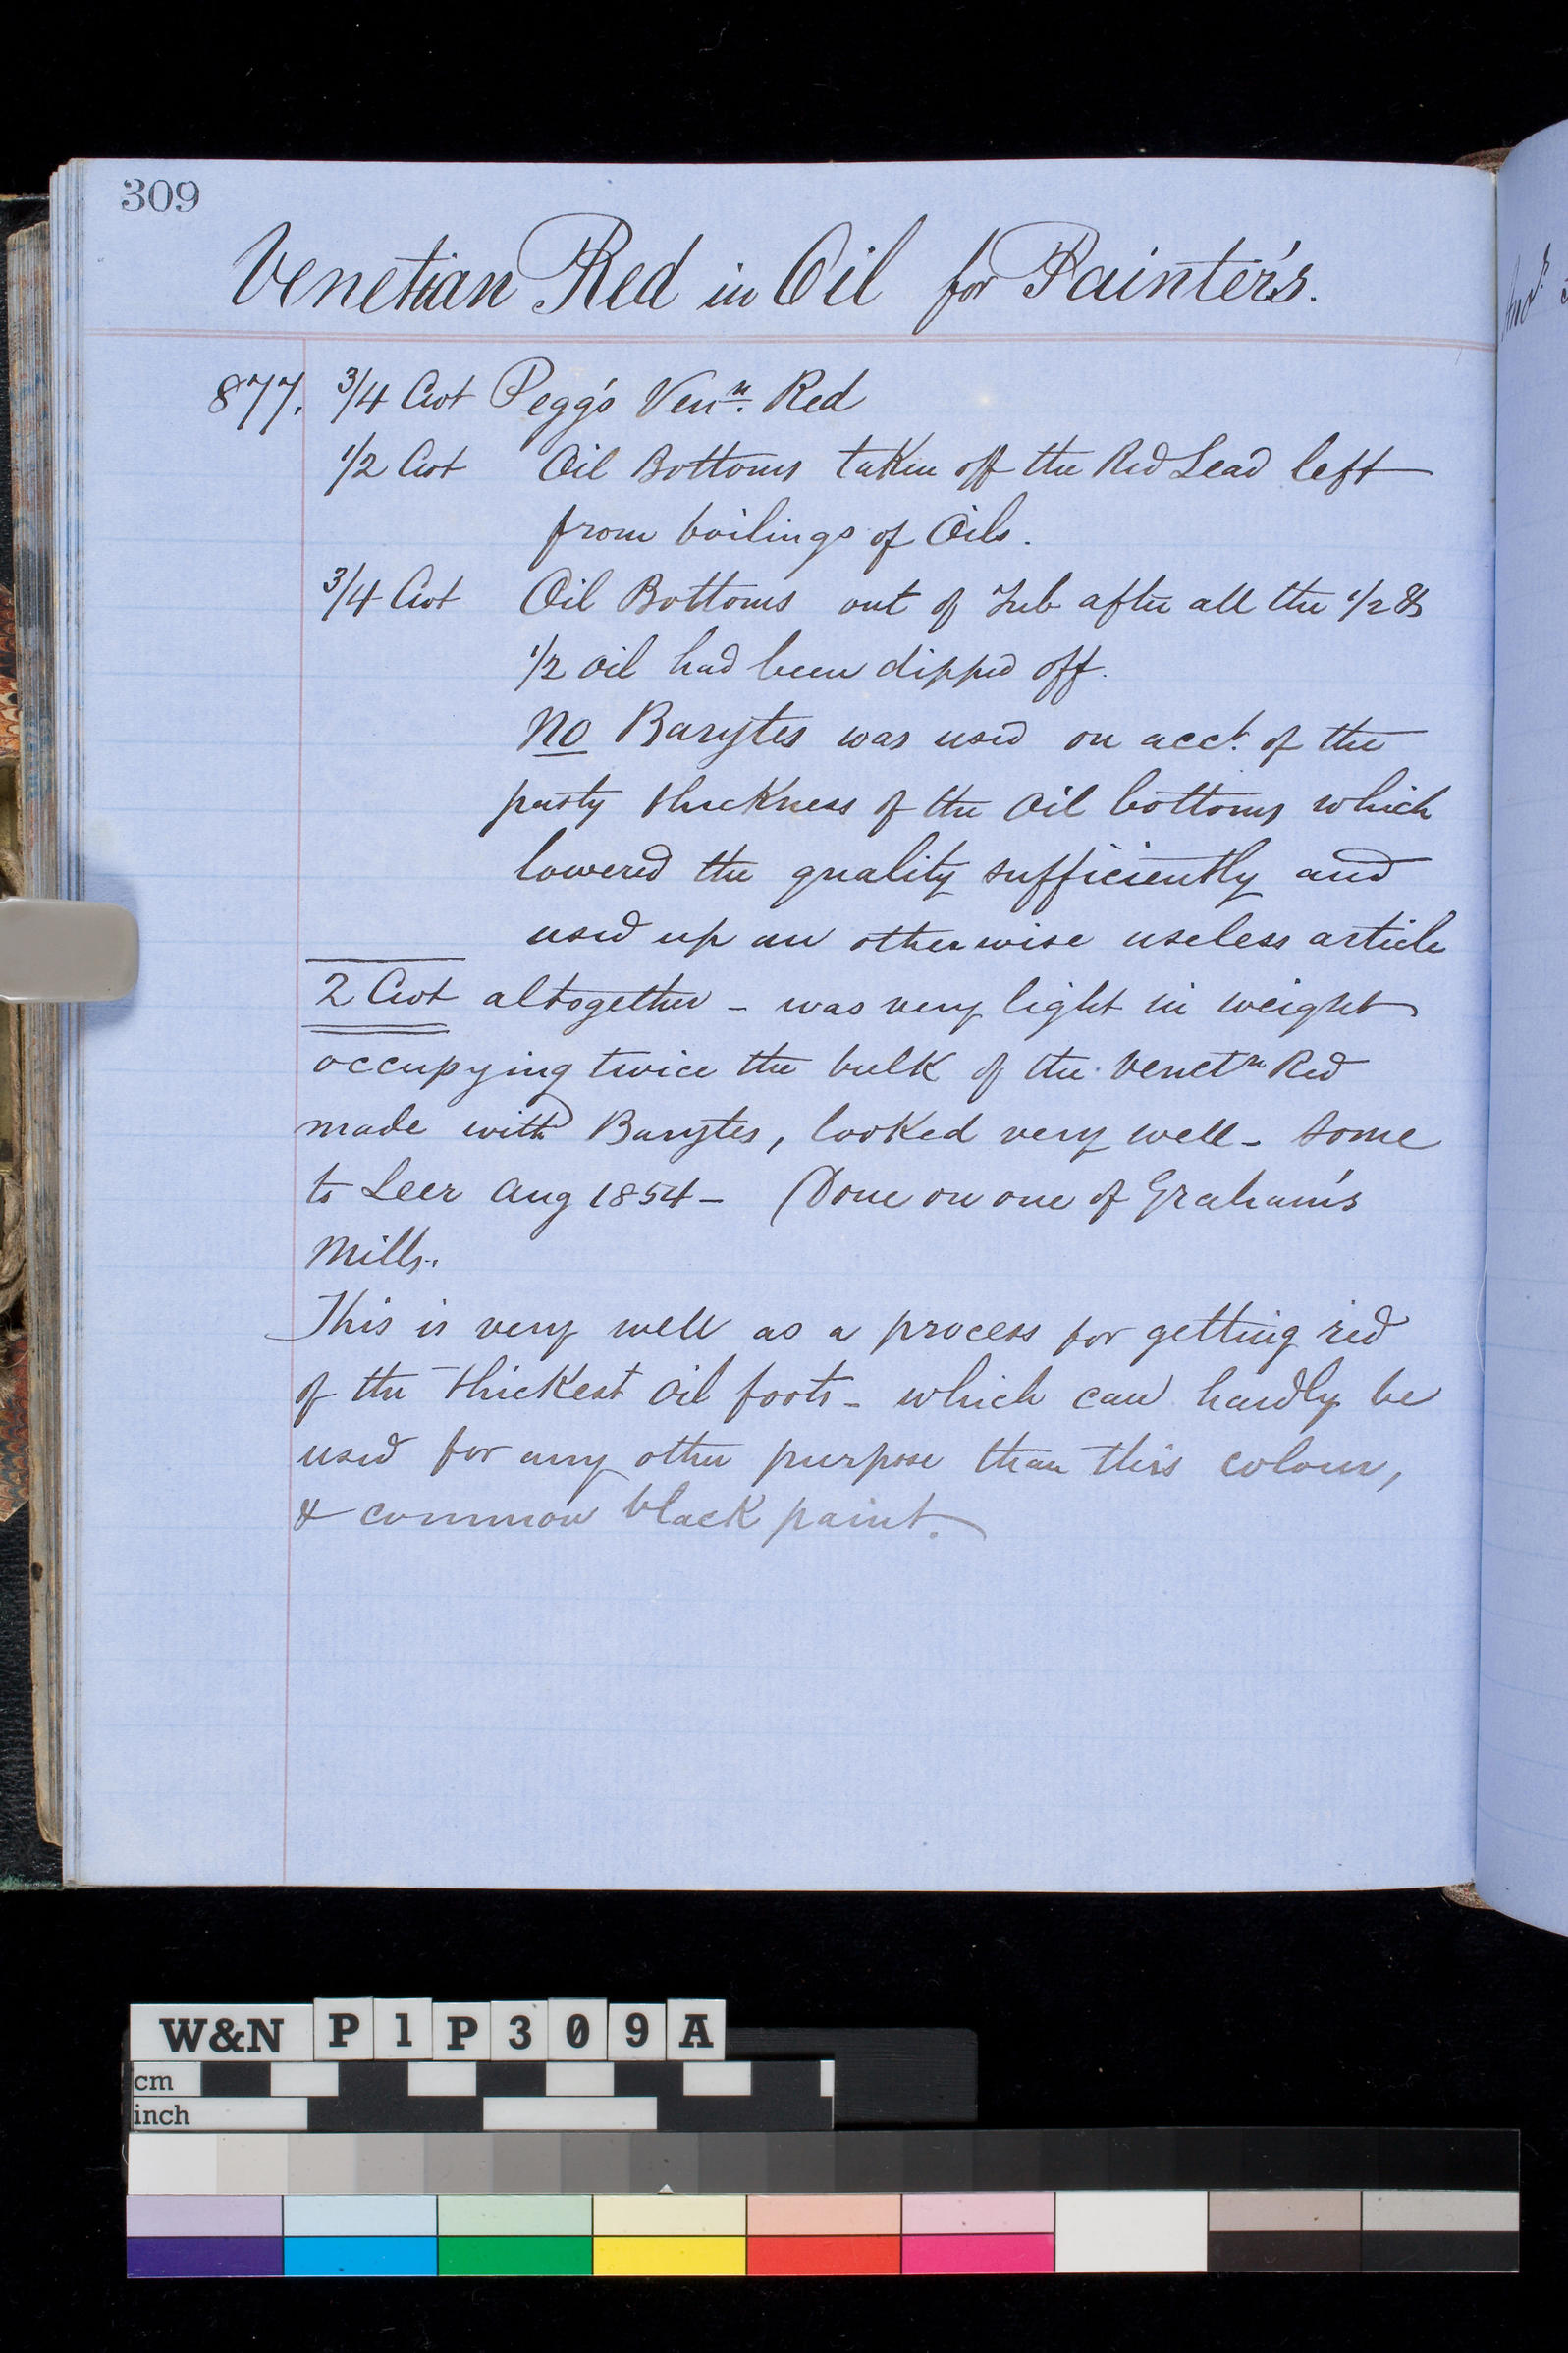 309
Venetian Red in Oil for Painter's.
877. 3/4 Cwt Pegg's Venn. Red
1/2 Cwt Oil Bottoms taken off the Red Lead left
from boilings of Oils.
3/4 Cwt Oil Bottoms out of Tub after all the 1/2 &
1/2 oil had been dipped off.
No Barytes was used on acct. of the
pasty thickness of the Oil bottoms which
lowered the quality sufficiently and
used up an otherwise useless article
2 Cwt altogether - was very light in weight
occupying twice the bulk of the Venetn Red
made with Barytes, looked very well - some
to Leer Aug 1854 - (Done on one of Graham's
Mills.
This is very well as a process for getting rid
of the thickest oil foots - which can hardly be
used for any other purpose than this colour,
& common black paint.
W&N P1P309A
cm
inch